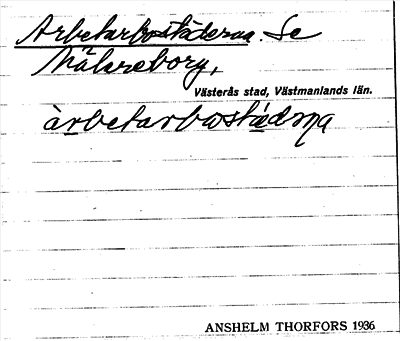 Arbetarbostäderna. Se
Mälareborg,
Västerås stad, Västmanlands län.
àrbetarbostä́dərna
ANSHELM THORFORS 1936